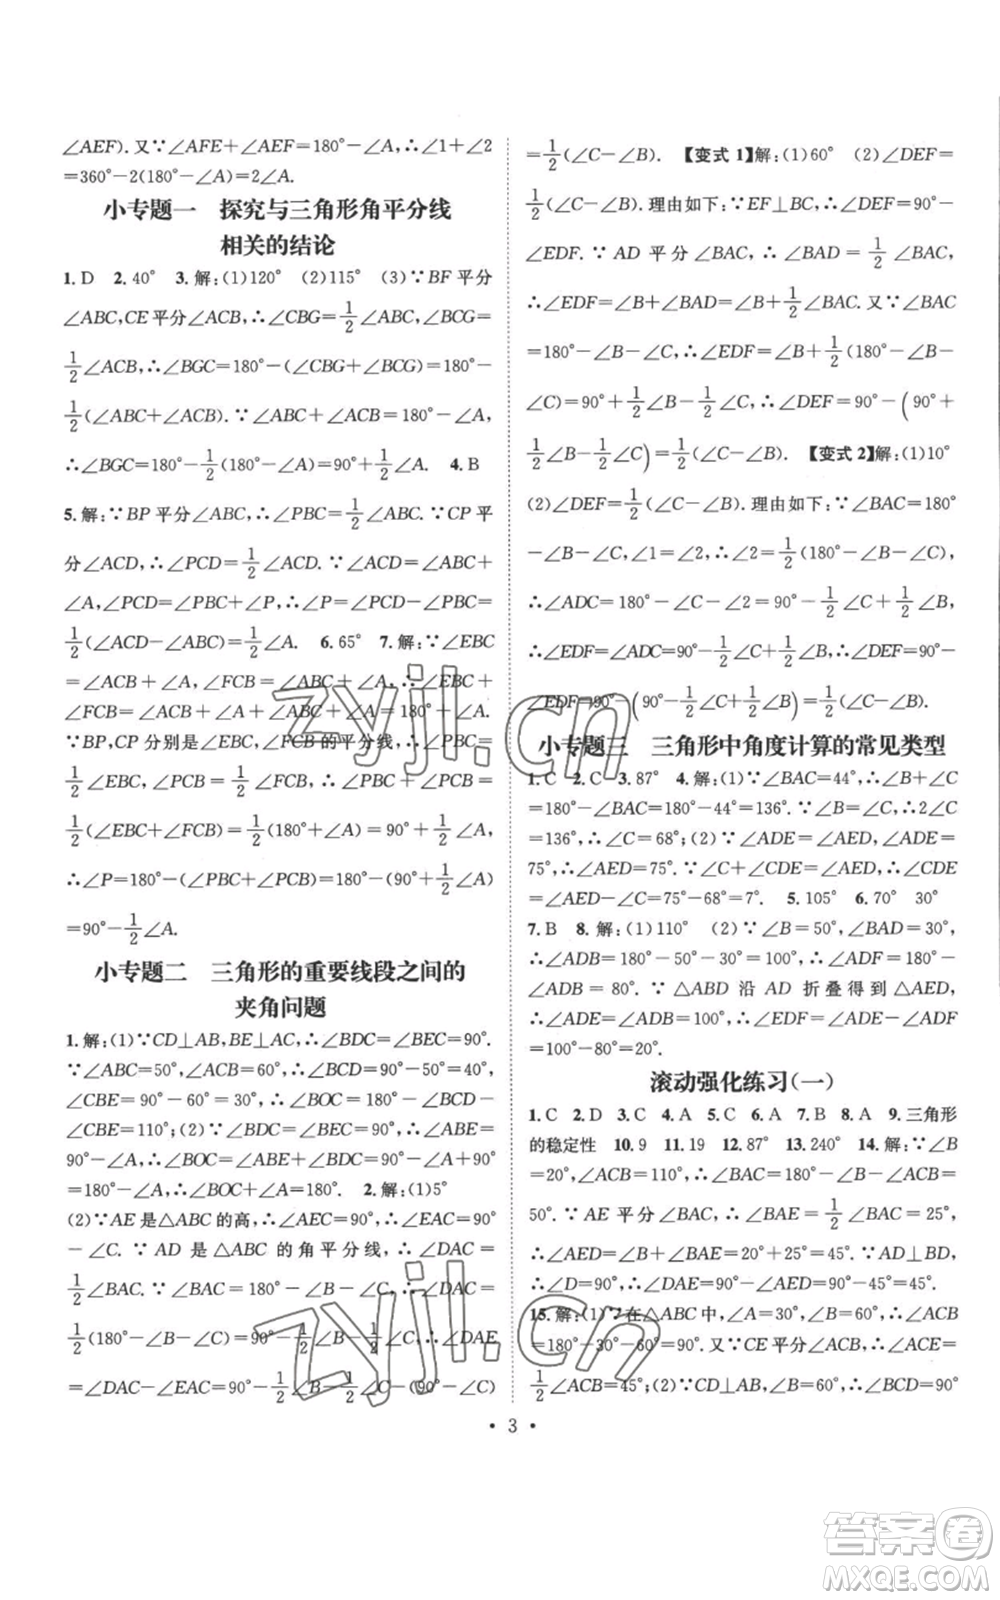 ∠AEF). 又∵∠AFE+∠AEF=180°-∠A,∴∠1+∠2
=360°-2(180°-∠A)=2∠A.
小专题一 探究与三角形角平分线
相关的结论
1. D 2. 40° 3. 解:(1)120° (2)115° (3)∵BF 平分
∠ABC,CE 平分∠ACB,∴∠CBG=1/2∠ABC,∠BCG=
1/2∠ACB,∴∠BGC=180°-(∠CBG+∠BCG)=180°-
1/2(∠ABC+∠ACB). ∵∠ABC+∠ACB=180°-∠A,
∴∠BGC=180°-1/2(180°-∠A)=90°+1/2∠A. 4. B
5. 解:∵BP 平分∠ABC,∴∠PBC=1/2∠ABC. ∵CP 平
分∠ACD,∴∠PCD=1/2∠ACD. ∵∠ACD=∠ABC+
∠A,∠PCD=∠PBC+∠P,∴∠P=∠PCD-∠PBC=
1/2(∠ACD-∠ABC)=1/2∠A. 6. 65° 7. 解:∵∠EBC
=∠ACB+∠A,∠FCB=∠ABC+∠A,∴∠EBC+
∠FCB=∠ACB+∠A+∠ABC+∠A=180°+∠A.
∵BP,CP 分别是∠EBC,∠FCB 的平分线,∴∠PBC=
1/2∠EBC,∠PCB=1/2∠FCB,∴∠PBC+∠PCB=
1/2(∠EBC+∠FCB)=1/2(180°+∠A)=90°+1/2∠A,
∴∠P=180°-(∠PBC+∠PCB)=180°-(90°+1/2∠A)
=90°-1/2∠A.
小专题二 三角形的重要线段之间的
夹角问题
1. 解:(1)∵CD⊥AB,BE⊥AC,∴∠BDC=∠BEC=90°.
∵∠ABC=50°,∠ACB=60°,∴∠BCD=90°-50°=40°,
∠CBE=90°-60°=30°,∴∠BOC=180°-∠BCD-
∠CBE=110°;(2)∵∠BOC=∠CBE+∠BEC=∠CBE+
90°-∠A,∴∠BOC=∠CBE+90°,∴∠BOC=90°-∠A+90°
=180°-∠A,∴∠BOC+∠A=180°. 2. 解:(1)5°
(2)∵AE 是△ABC 的高,∴∠AEC=90°,∴∠EAC=90°
-∠C. ∵AD 是△ABC 的角平分线,∴∠DAC=
1/2∠BAC. ∵∠BAC=180°-∠B-∠C,∴∠DAC=
1/2(180°-∠B-∠C)=90°-1/2∠B-1/2∠C,∴∠DAE
=∠DAC-∠EAC=90°-1/2∠B-1/2∠C-(90°-∠C)
=1/2(∠C-∠B). 【变式1】解:(1)60° (2)∠DEF=
1/2(∠C-∠B). 理由如下:∵EF⊥BC,∴∠DEF=90°-
∠EDF. ∵AD 平分∠BAC,∴∠BAD=1/2∠BAC,
∴∠EDF=∠B+∠BAD=∠B+1/2∠BAC. 又∵∠BAC
=180°-∠B-∠C,∴∠EDF=∠B+1/2(180°-∠B-
∠C)=90°+1/2∠B-1/2∠C,∴∠DEF=90°-(90°+
1/2∠B-1/2∠C)=1/2(∠C-∠B). 【变式2】解:(1)10°
(2)∠DEF=1/2(∠C-∠B). 理由如下:∵∠BAC=180°
-∠B-∠C,∠1=∠2,∴∠2=1/2(180°-∠B-∠C),
∴∠ADC=180°-∠C-∠2=90°+1/2∠B-1/2∠C,
∴∠EDF=∠ADC=90°-1/2∠C+1/2∠B,∴∠DEF=90°-
∠EDF=90°-(90°-1/2∠C+1/2∠B)=1/2(∠C-∠B).
小专题三 三角形中角度计算的常见类型
1. C 2. C 3. 87° 4. 解:(1)∵∠BAC=44°,∴∠B+∠C
=180°-∠BAC=180°-44°=136°. ∵∠B=∠C,∴2∠C
=136°,∴∠C=68°;(2)∵∠ADE=∠AED,∠ADE=
75°,∴∠AED=75°. ∵∠C+∠CDE=∠AED,∴∠CDE
=∠AED-∠C=75°-68°=7°. 5. 105° 6. 70° 30°
7. B 8. 解:(1)110° (2)∵∠B=50°,∠BAD=30°,
∴∠ADB=180°-50°-30°=100°,∠ADF=∠B+
∠BAD=80°. ∵△ABD 沿 AD 折叠得到△AED,
∴∠ADE=∠ADB=100°,∴∠EDF=∠ADE-∠ADF
=100°-80°=20°.
滚动强化练习(一)
1. C 2. D 3. C 4. A 5. C 6. A 7. B 8. A 9. 三角形
的稳定性 10. 9 11. 19 12. 87° 13. 240° 14. 解:∵∠B
=20°,∠ACB=110°,∴∠BAC=180°-∠B-∠ACB=
50°. ∵AE 平分∠BAC,∴∠BAE=1/2∠BAC=25°,
∴∠AED=∠B+∠BAE=20°+25°=45°. ∵AD⊥BD,
∴∠D=90°,∴∠DAE=90°-∠AED=90°-45°=45°.
15. 解:(1)∵在△ABC 中,∠A=30°,∠B=60°,∴∠ACB
=180°-30°-60°=90°. 又∵CE 平分∠ACB,∴∠ACE=
1/2∠ACB=45°;(2)∵CD⊥AB,∠B=60°,∴∠BCD=90°
• 3 •
zyjl.cn
zyjl.cn
答案圈
MXQE.COM